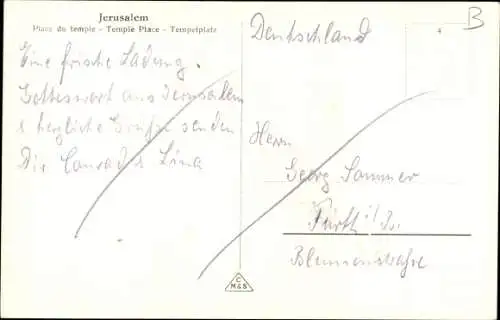 Jerusalem
Place du temple - Temple Place - Tempelplatz
Eine frische Ladung
Gotteswort aus Jerusalem
& herzliche Grüße senden
Dir Conrad & Lina
Deutschland
4
B
Herrn
Georg Sommer
Fürth i/B.
Blumenstraße
C
M & S